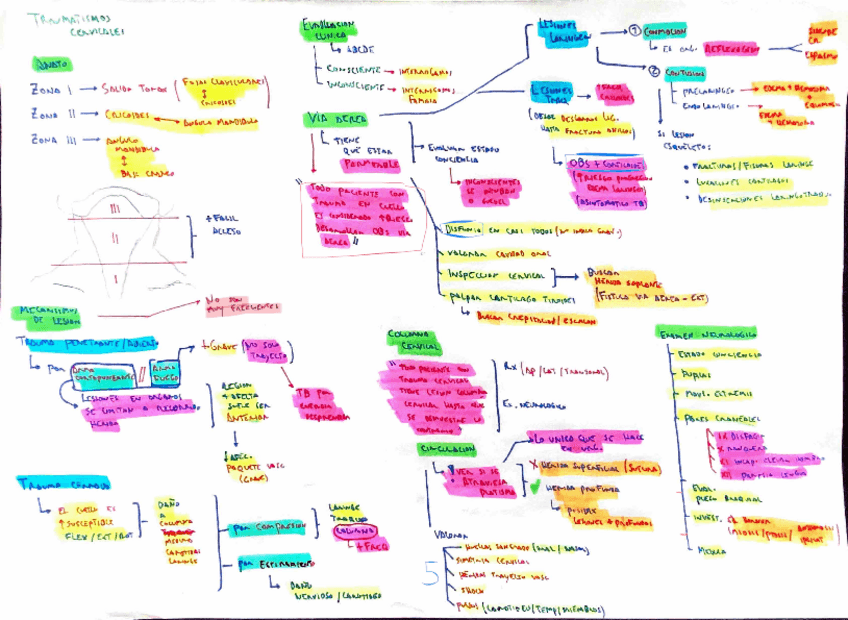 TRAUMATISMOS
CERVICALES
ZONA I → SALIDA TORAX (FOSAS CLAVICULARES
CRICOIDES
ZONA II → CRICOIDES ANGULO MANDIBULA
ZONA III → ANGULO
MANDIBULA
BASE CRANEO
III
II
I
+ FACIL
ACCESO
MECANISMOS
DE LESION
NO SON
MUY FRECUENTES
TRAUMA PENETRANTE/ABIERTO
POR ARMA
CORTOPUNZANTE // ARMA
FUEGO
+ GRAVE (NO SOLO
TRAYECTO)
TB POR
ENERGIA
LESIONES EN ORGANOS
SE LIMITAN A RECORRIDO
HERIDA
REGION
+ AFECTA
SUELE SER
ANTERIOR
PAQUETE VASC
(GRAVE)
TRAUMA CERRADO
EL CUELLO ES
↑ SUSCEPTIBLE
FLEX/EXT/ROT
DAÑO
A
COLUMNA
MEDULA
CAROTIDAS
LARINGE
POR COMPRESION
LARINGE
TRAQUEA
COLUMNA
+ FREQ
POR ESTIRAMIENTO
DAÑO
NERVIOSO/CAROTIDEO
EVALUACION
CLINICA
ABCDE
CONSCIENTE → INTERROGAMOS
INCONSCIENTE → INTERROGAMOS
FAMILIA
VIA AEREA
TIENE
QUE ESTAR
PERMEABLE
EVALUAR ESTADO
CONCIENCIA
INCONSCIENTES
SE INTUBAN
"TODO PACIENTE CON
TRAUMA EN CUELLO
ES CONSIDERADO ↑ RIESGO
DESARROLLAR OBS VIA
AEREA"
DISFONIA EN CASI TODOS
VALORAR CAVIDAD ORAL
INSPECCION CERVICAL
PALPAR CARTILAGO TIROIDES
BUSCAR
HERIDA SOPLANTE
(FISTULA VIA AEREA - EXT)
BUSCAR CREPITACION/ESCALON
LESIONES
LARINGEAS
① CONMOCION
ES ORG. REFLEXOGENO
② CONTUSION
PRELARINGEO → EDEMA + HEMATOMA
ENDOLARINGEO
EDEMA
+ HEMATOMA
SI LESION
ESQUELETOS
• FRACTURAS/FISURAS LARINGE
• LUXACIONES CARTILAGOS
• DESINSERCIONES LARINGOTRAQ.
LESIONES
TRAQ
(DESDE DESGARRO LIG.
HASTA FRACTURA ANILLOS)
(↑ RIESGO PROGRESION
EDEMA LARINGEO)
(ASINTOMATICO TB)
COLUMNA
CERVICAL
"TODO PACIENTE CON
TRAUMA CERVICAL
TIENE LESION COLUMNA
CERVICAL HASTA QUE
SE DEMUESTRE LO
CONTRARIO"
RX (AP/LAT/TRANSORAL)
EX. NEUROLOGICO
CIRCULACION
VER SI SE
ATRAVIESA
PLATISMA
LO UNICO QUE SE HACE
EN URG.
X HERIDA SUPERFICIAL (SUTURA)
HERIDA PROFUNDA
POSIBLE
LESIONES + PROFUNDAS
VALORAR
5
HUELLAS SANGRADO (ORAL/NASAL)
SIMETRIA CERVICAL
HERIDAS TRAYECTO VASC
SHOCK
PULSOS (CAROTIDEO/TEMP/MIEMBROS)
EXAMEN NEUROLOGICO
ESTADO CONCIENCIA
PUPILAS
MOVS. EXTREMIS
PARES CRANEALES
IX DISFAG
X RONQUERA
XI INCAP. ELEVAR HOMBRO
XII PARESIA LENGUA
EVAL.
PLEXO BRAQUIAL
INVEST. SX HORNER
(MIOSIS/PTOSIS/
MEDULA